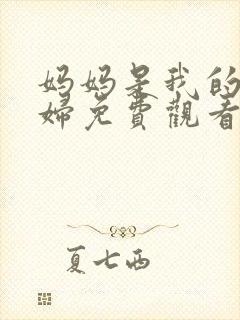 妈妈是我的
婦免費觀看
夏七西